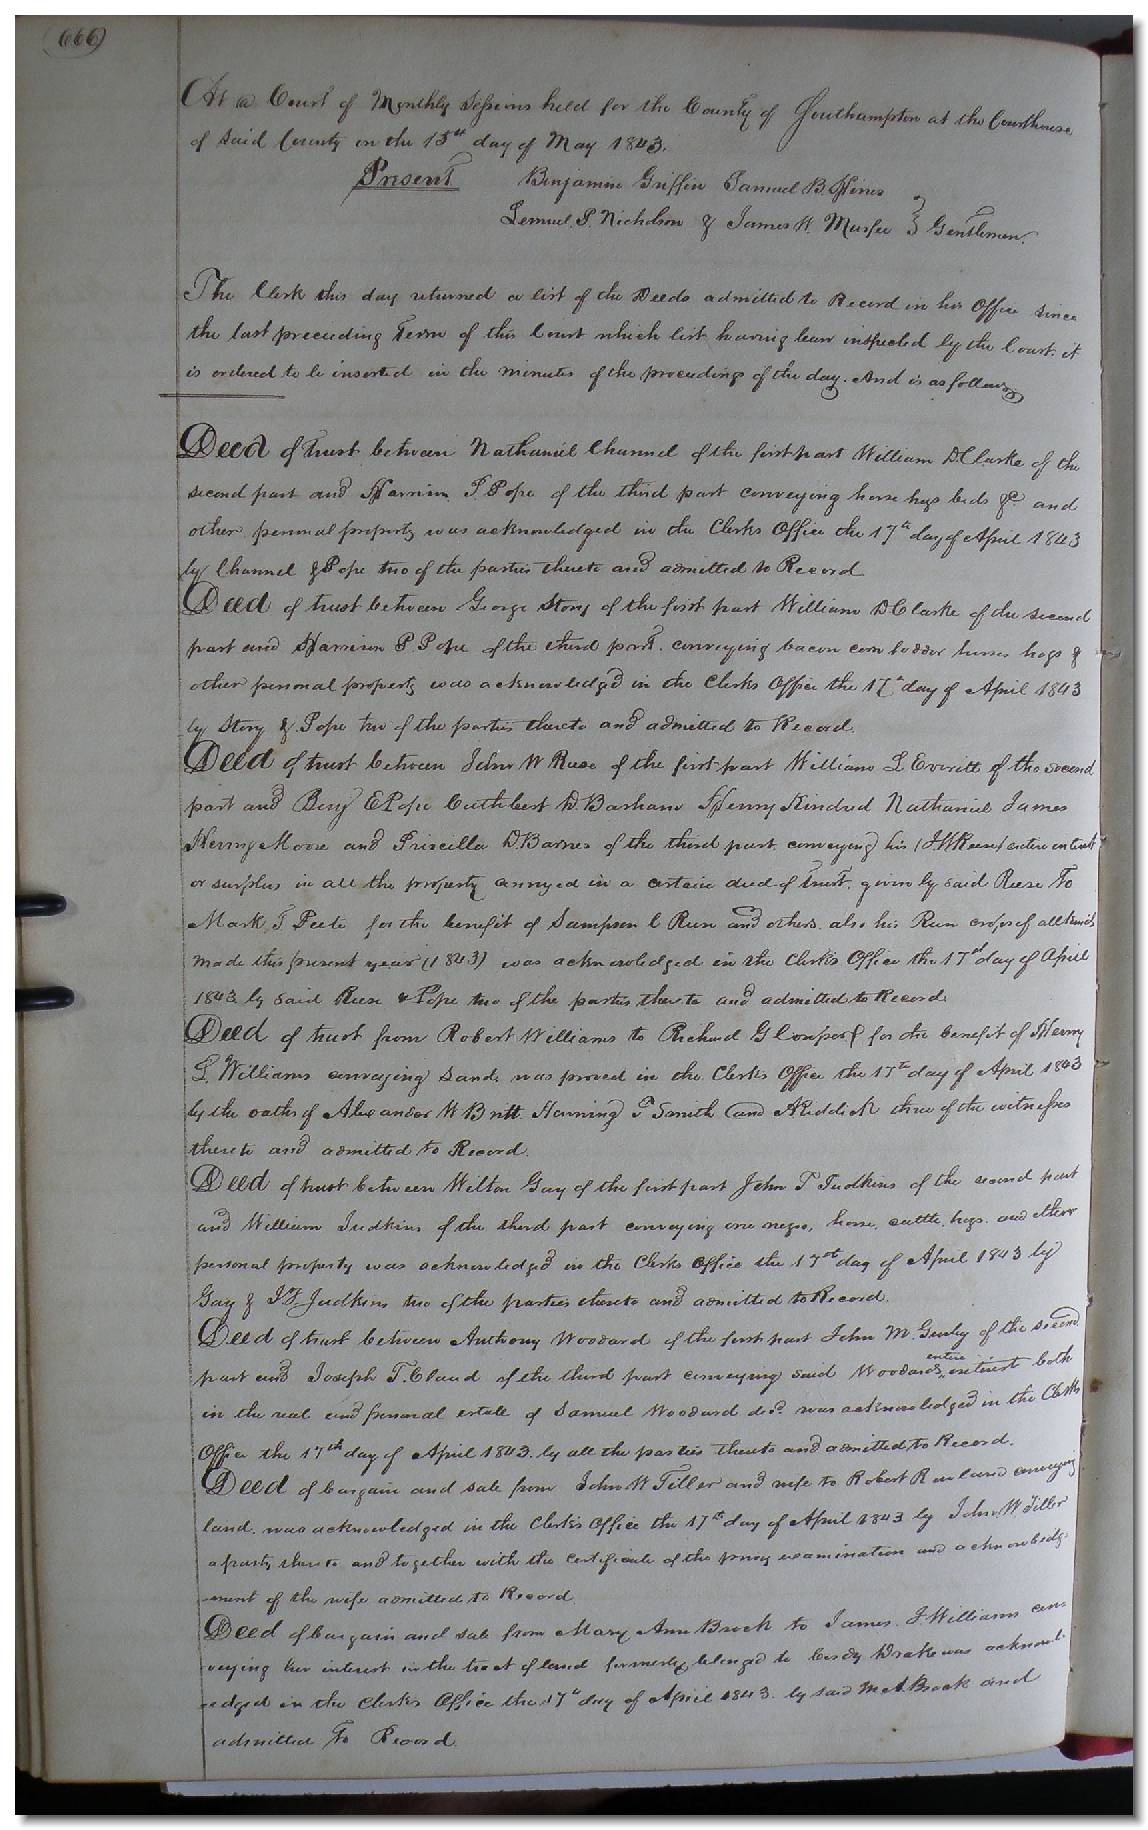 666
At a Court of Monthly Sessions held for the County of Southampton at the Courthouse
of said County on the 15th day of May 1843.
Present Benjamin Griffin Samuel B. Hines
Lemuel P. Nicholson & James H. Murfee } Gentlemen.
The Clerk this day returned a list of the Deeds admitted to Record in his Office since
the last preceeding Term of this Court which list having been inspected by the Court. it
is ordered to be inserted in the minutes of the proceedings of the day. And is as follows
Deed of trust between Nathaniel Channel of the first part William D. Clarke of the
second part and Harrison P. Pope of the third part conveying horse hogs beds &c. and
other personal property was acknowledged in the Clerks Office the 17th day of April 1843
by Channel & Pope two of the parties thereto and admitted to Record
Deed of trust between George Story of the first part William D Clarke of the second
part and Harrison P. Pope of the third part. conveying bacon corn fodder horses hogs &
other personal property was acknowledged in the Clerks Office the 17th day of April 1843
by Story & Pope two of the parties thereto and admitted to Record.
Deed of trust between John W Reese of the first part William L Everett of the second
part and Benj E Pope Cuthbert D. Barham Henry Kindred Nathaniel James
Henry Moore and Priscilla D. Barnes of the third part. conveying his (J W Reese) entire interest
or surplus in all the property conveyed in a certain deed of trust. given by said Reese To
Mark T Peete for the benefit of Sampson C Reese and others. also his Reese crops of all kinds
made this present year (1843) was acknowledged in the Clerks Office the 17th day of April
1843 by said Reese & Pope two of the parties thereto and admitted to Record.
Deed of trust from Robert Williams to Richard G Cowper for the benefit of Henry
L. Williams conveying Land. was proved in the Clerks Office the 17th day of April 1843
by the oaths of Alexander W Britt. Hanning T Smith and A Riddick three of the witnesses
thereto and admitted to Record.
Deed of trust between Wilton Gay of the first part John T Judkins of the second part
and William Judkins of the third part conveying one negro, horse, cattle, hogs. and other
personal property was acknowledged in the Clerks Office the 17th day of April 1843 by
Gay & J T Judkins two of the parties thereto and admitted to Record.
Deed of trust between Anthony Woodard of the first part John M. Gurley of the second
part and Joseph T. Claud of the third part conveying said Woodards entire interest both
in the real and personal estate of Samuel Woodard decd. was acknowledged in the Clerks
Office the 17th day of April 1843. by all the parties thereto and admitted to Record.
Deed of bargain and sale from John W Tiller and wife to Robert Rowland conveying
land. was acknowledged in the Clerks Office the 17th day of April 1843 by John W. Tiller
a party thereto and together with the certificate of the privy examination and acknowledg-
-ment of the wife admitted to Record.
Deed of bargain and sale from Mary Ann Brock to James J Williams con-
veying her interest in the tract of land formerly belonged to Drake was acknowl-
-edged in the Clerks Office the 17th day of April 1843. by said M A. Brock and
admitted To Record.